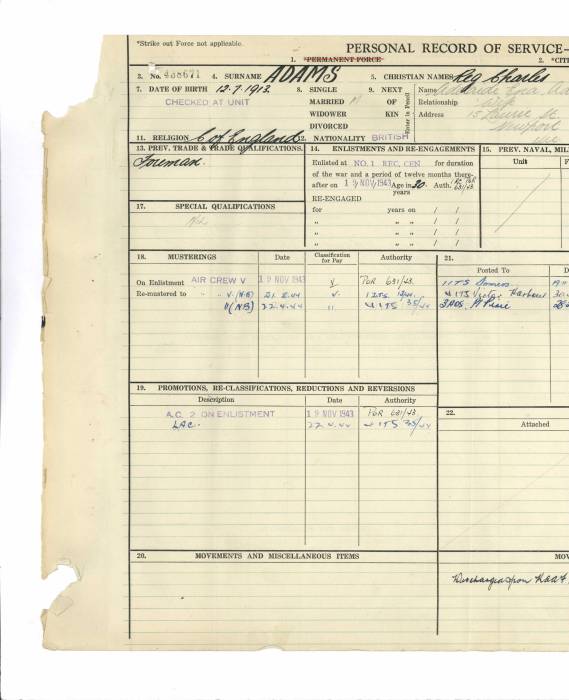 *Strike out Force not applicable.
PERSONAL RECORD OF SERVICE—
1. *PERMANENT FORCE 2. *CITI
3. No. 438671 4. SURNAME ADAMS 5. CHRISTIAN NAMES Reg Charles
7. DATE OF BIRTH 13.7.1913 8. SINGLE 9. NEXT Name
CHECKED AT UNIT MARRIED M OF Relationship wife
WIDOWER KIN Address 15
DIVORCED Enter in Pencil
11. RELIGION C of England 12. NATIONALITY BRITISH
13. PREV. TRADE & TRADE QUALIFICATIONS. 14. ENLISTMENTS AND RE-ENGAGEMENTS 15. PREV. NAVAL, MIL
Foreman. Unit
Enlisted at NO. 1 REC. CEN for duration
of the war and a period of twelve months there-
after on 19 NOV 1943 Age in 30. Auth. POR 631/43
years
RE-ENGAGED
for years on / /
17. SPECIAL QUALIFICATIONS " " " / /
Nil " " " / /
" " " / /
18. MUSTERINGS Date Classification for Pay Authority 21.
Posted To D
On Enlistment AIR CREW V 19 NOV 1943 V POR 631/43. 1 ITS Somers
Re-mustered to " " V. (N.B) 21.2.44 V. 1 ITS 4 ITS Victor Harbour 30
V (N B) 22.4.44 " 4 ITS 35/44 3 AOS. Pt Pirie 28
19. PROMOTIONS, RE-CLASSIFICATIONS, REDUCTIONS AND REVERSIONS
Description Date Authority
A.C. 2 ON ENLISTMENT 19 NOV 1943 POR 631/43 22.
LAC. 22.4.44 4 ITS 35/44 Attached
20. MOVEMENTS AND MISCELLANEOUS ITEMS MOV
Discharged from RAAF